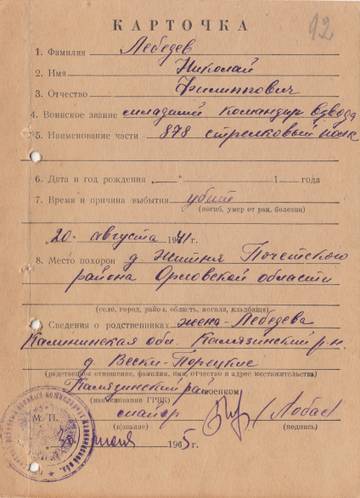 12
КАРТОЧКА
1. Фамилия Лебедев
2. Имя Николай
3. Отчество Филиппович
4. Воинское звание младший командир взвода
5. Наименование части 878 стрелковый полк
6. Дата и год рождения 1 года
7. Время и причина выбытия убит
(погиб, умер от ран, болезни)
20 августа 1941 г.
8. Место похорон д. Почепского
района Орловской области
(село, город, район, область, могила, кладбище)
9. Сведения о родственниках жена - Лебедева
Калининская обл. Калязинский р-н
д.
(родственное отношение, фамилия, имя, отчество и адрес местожительства)
Калязинский рай военком
(наименование ГРВК)
М. П. майор
(звание) (подпись)
1965 г.